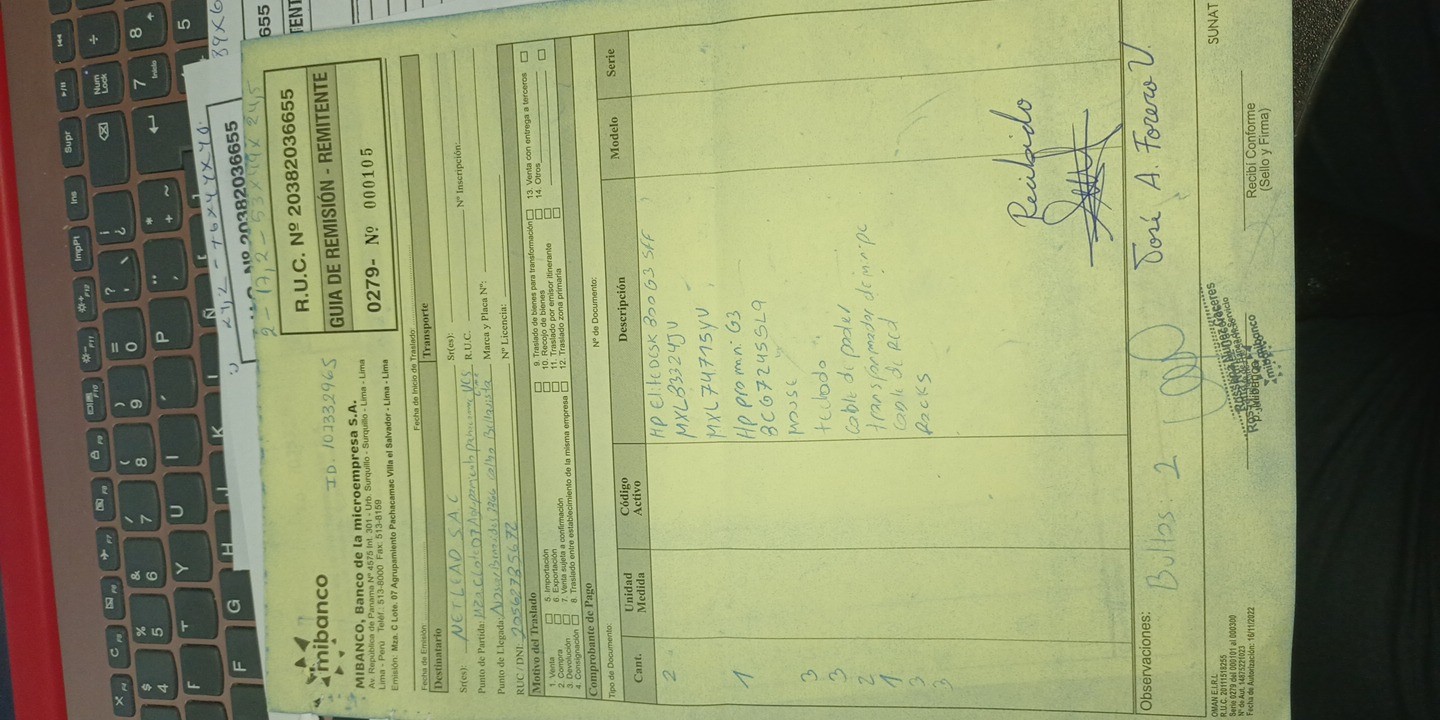 mibanco
ID. 101332965
MIBANCO, Banco de la microempresa S.A.
Av. República de Panamá Nº 4575 Int. 301 - Urb. Surquillo - Surquillo - Lima - Lima
Lima - Perú Teléf.: 513-8000 Fax: 513-8159
Emisión: Mza. C Lote. 07 Agrupamiento Pachacamac Villa el Salvador - Lima - Lima
R.U.C. Nº 20382036655
GUIA DE REMISIÓN - REMITENTE
0279- Nº 000105
Fecha de Emisión:
Fecha de Inicio de Traslado:
Destinatario
Transporte
Sr(es): NETLEAD S.A.C
Sr(es):
Punto de Partida: Mza C Lote 07
VES
R.U.C.
Nº Inscripción:
Punto de Llegada:
Bellavista
Marca y Placa Nº:
RUC / DNI:
Nº Licencia:
Motivo del Traslado
1. Venta
2. Compra
3. Devolución
4. Consignación
5. Importación
6. Exportación
7. Venta sujeta a confirmación
8. Traslado entre establecimiento de la misma empresa
9. Traslado de bienes para transformación
10. Recojo de bienes
11. Traslado por emisor itinerante
12. Traslado zona primaria
13. Venta con entrega a terceros
14. Otros
Comprobante de Pago
Tipo de Documento:
Nº de Documento:
Cant. Unidad Medida Código Activo Descripción Modelo Serie
2 HP Elitedesk 800 G3 SFF
MXL83324JV
MXL74715YV
1 HP pro mini G3
8CG7245SL9
3 mouse
3 teclado
2 cable de poder
1 transformador de mini pc
3 cable de red
3 Packs
Recibido
Observaciones: Bultos: 2
José A. Forero V.
OMAN E.I.R.L
R.U.C. 20111518255
Serie 0279 del 000101 al 000300
Nº de Aut. 1483221023
Fecha de Autorización: 16/11/2022
mibanco
Recibí Conforme
(Sello y Firma)
SUNAT